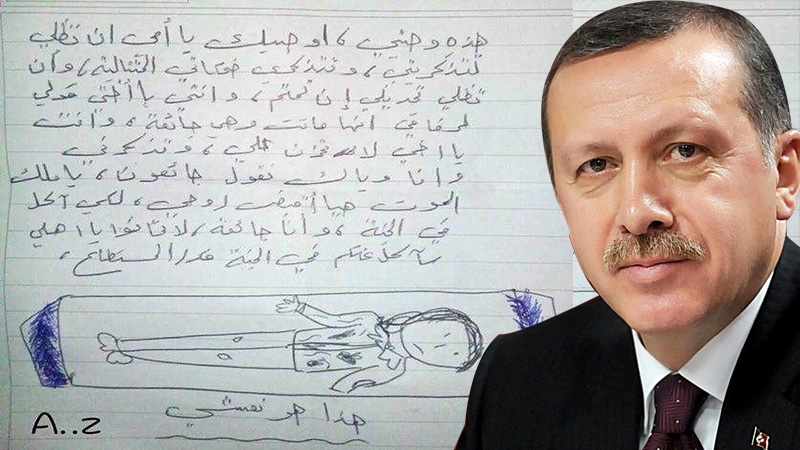 هذه وصتي ، اوصيك يا أمي ان تظلي
تتذكريني ، وتتذكري ضحكاتي القتالة ، وأن
تظلي ، وانتي يا أختي قولي
لرفاقي انها ماتت وهي جائعة ، وانت
يا اخي لا تحزن علي ، وتذكرني
وانا وياك نقول جائعون ، يا ملك
الموت هيا أقبض روحي ، لكي آكل
في الجنة ، وأنا جائعة ، لا تخافوا يا اهلي
سآكل عنكم في الجنة قدر المستطاع ،
هذا هو نعشي
A..z